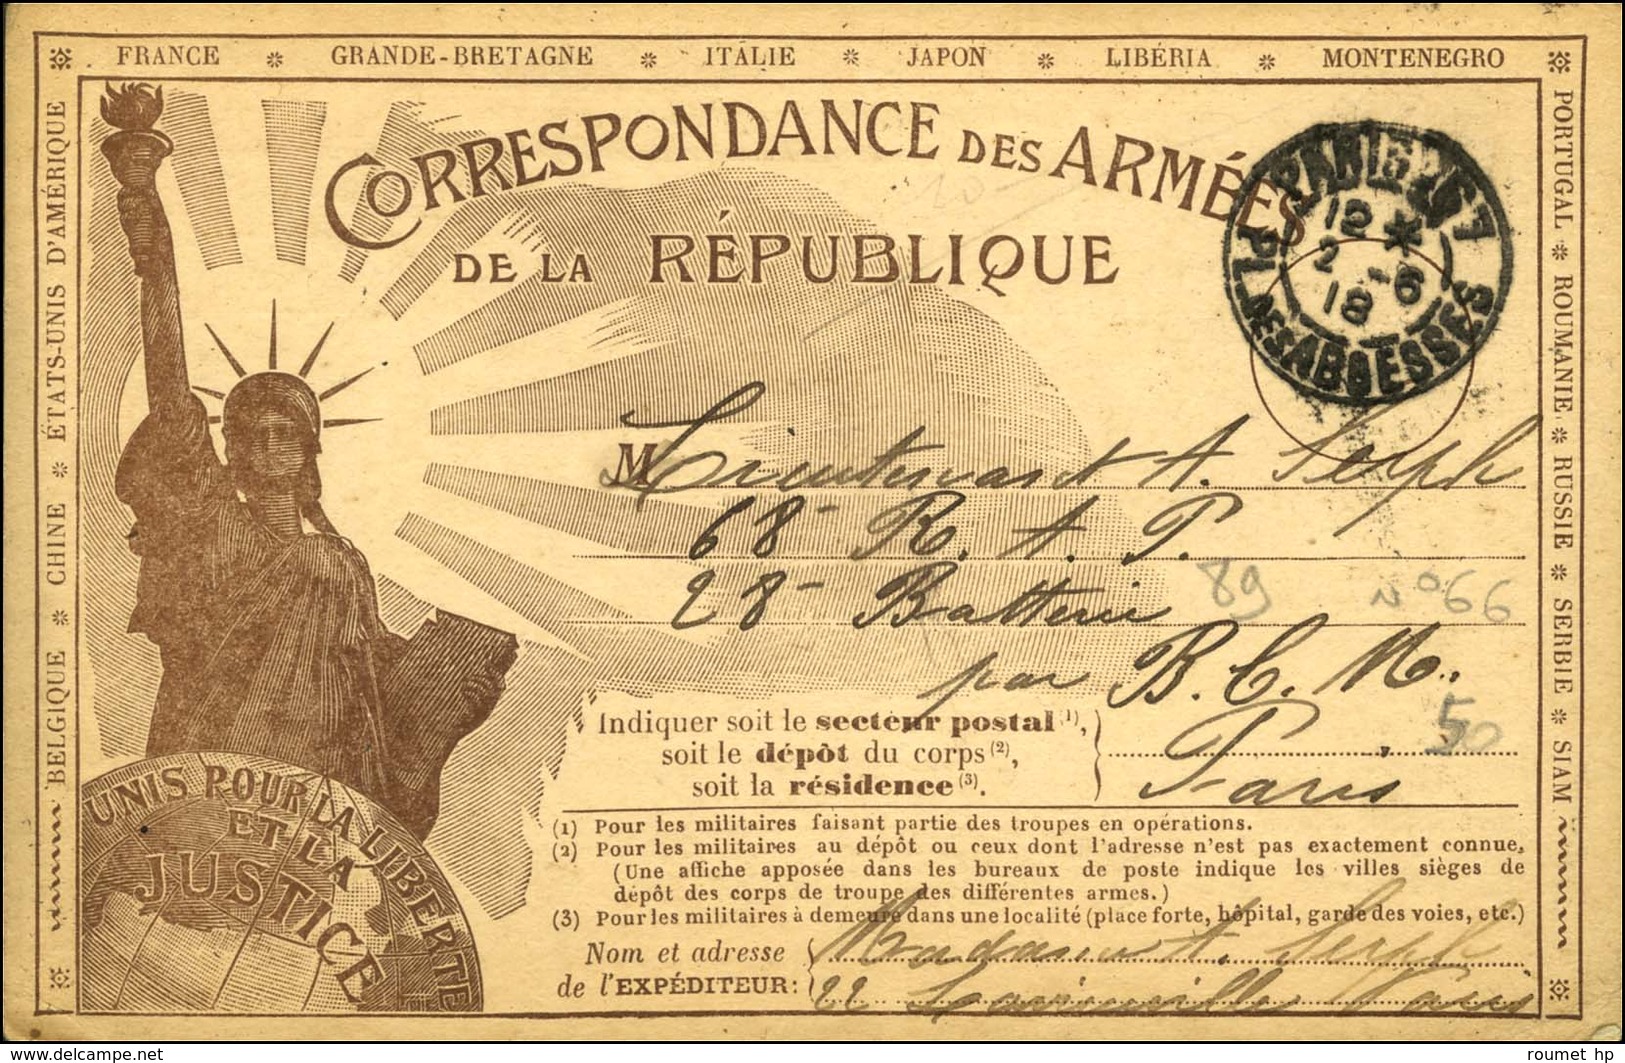 FRANCE * GRANDE-BRETAGNE * ITALIE * JAPON * LIBÉRIA * MONTENEGRO
BELGIQUE * CHINE * ÉTATS-UNIS D'AMÉRIQUE
PORTUGAL * ROUMANIE * RUSSIE * SERBIE * SIAM
CORRESPONDANCE DES ARMÉES
DE LA RÉPUBLIQUE
12 *
2 -6
18
PL. DES ABBESSES
M Lieutenant A. Serph
68- R. A. P.
28- Batterie
89
N° 66
par B. C. M.
50
Indiquer soit le secteur postal (1),
soit le dépôt du corps (2),
soit la résidence (3).
Paris
(1) Pour les militaires faisant partie des troupes en opérations.
(2) Pour les militaires au dépôt ou ceux dont l'adresse n'est pas exactement connue,
(Une affiche apposée dans les bureaux de poste indique les villes sièges de
dépôt des corps de troupe des différentes armes.)
(3) Pour les militaires à demeure dans une localité (place forte, hôpital, garde des voies, etc.)
Nom et adresse
de l'EXPÉDITEUR:
Madame A. Serph
22 Paris
UNIS POUR LA LIBERTÉ
ET LA
JUSTICE
delcampe.net
roumet hp